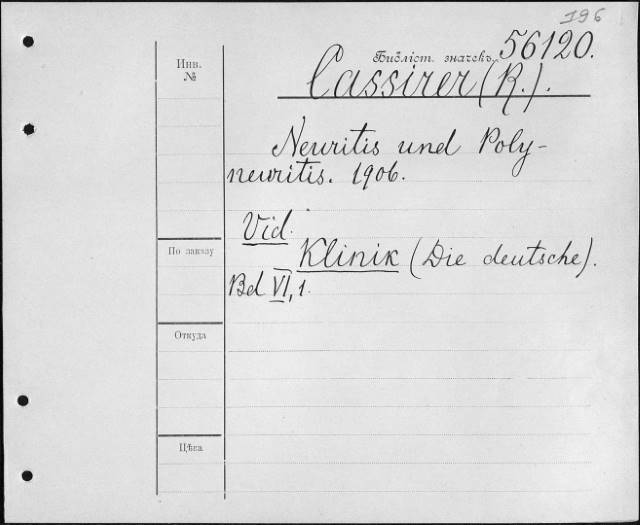 196
Инв.
№
Библіот. значекъ 56120.
Cassirer (R.).
Neuritis und Poly-
neuritis. 1906.
Vid.
Klinik (Die deutsche).
Bd VI, 1.
По заказу
Откуда
Цѣна